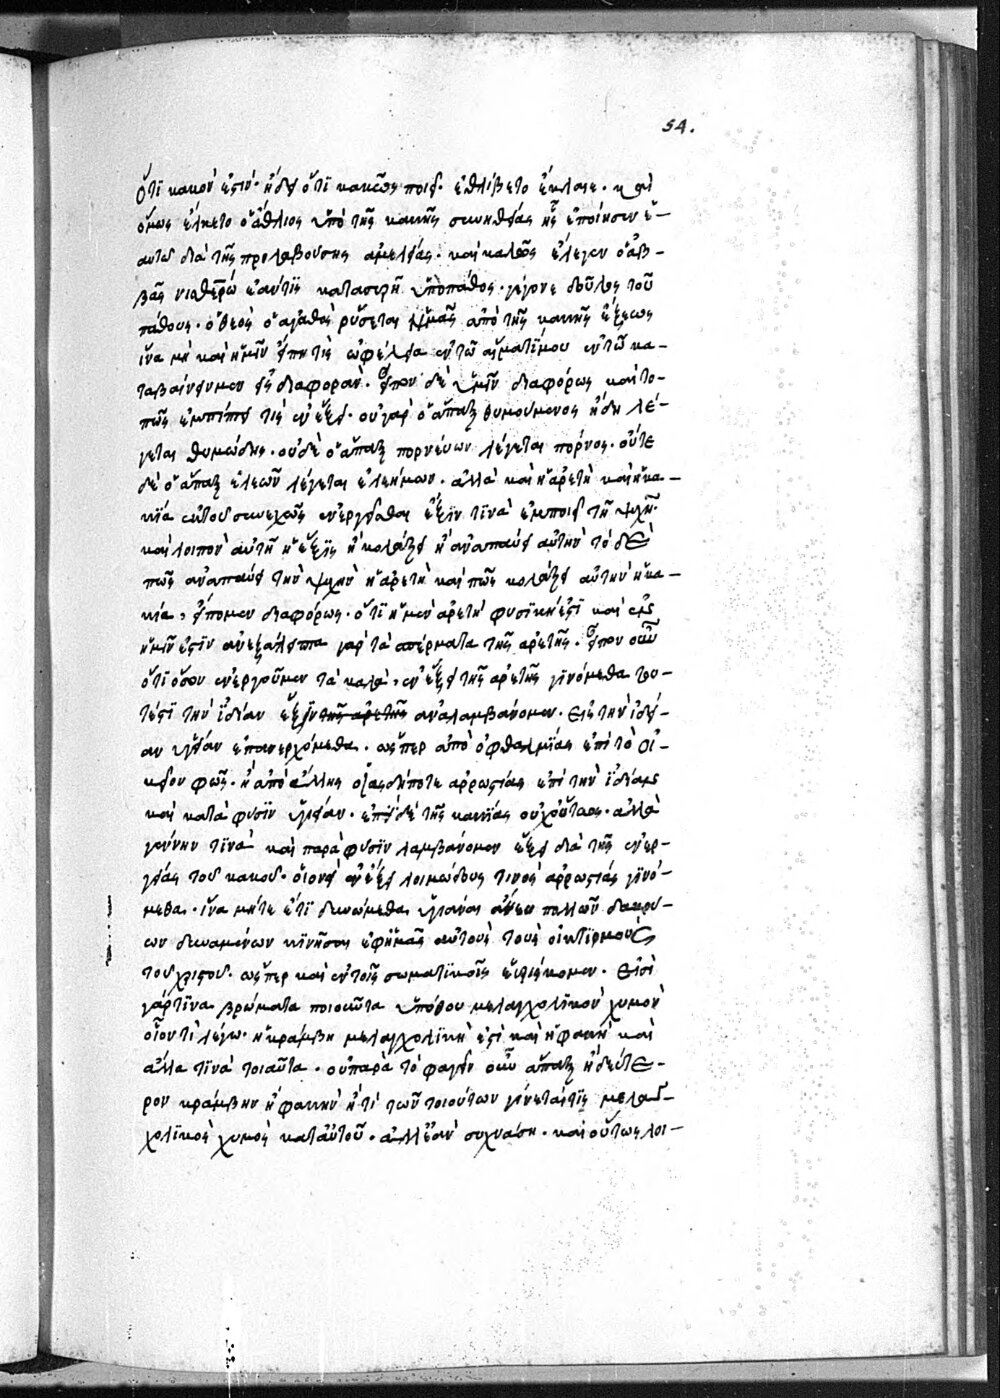 54.
ὅτι κακόν ἐστιν· ἤδει ὅτι κακῶς ποιεῖ· ἐθλίβετο ἔκλαιε· καὶ
ὅμως εἵλκετο ὁ ἄθλιος ὑπὸ τῆς κακῆς συνηθείας ἧς ἐποίησεν ἑ-
αυτῶ διὰ τῆς προλαβούσης ἀμελείας· καὶ καλῶς ἔλεγεν ὁ ἀβ-
βᾶς νισθερώ ἐὰν τίς κατασυρῆ ὑπὸ πάθος· γέγονε δοῦλος τοῦ
πάθους· ὁ θεὸς ὁ ἀγαθὸς ρύσεται ἡμᾶς ἀπὸ τῆς κακῆς ἕξεως
ἵνα μὴ καὶ ἡμῖν εἴπη τὶς ὠφέλεια ἐν τῶ αἵματί μου ἐν τῶ κα-
ταβαίνειν με εἰς διαφοράν· εἶπον δὲ ὑμῖν διαφόρως καὶ τὸ
πῶς ἐμπίπτει τὶς ἐν ἕξει· οὐ γὰρ ὁ ἅπαξ θυμούμενος ἤδη λέ-
γεται θυμώδης· οὐδὲ ὁ ἅπαξ πορνεύων λέγεται πόρνος· οὔτε
δὲ ὁ ἅπαξ ἐλεῶν λέγεται ἐλεήμων· ἀλλὰ καὶ ἡ ἀρετὴ καὶ ἡ κα-
κία ἐκ τοῦ συνεχῶς ἐνεργεῖσθαι ἕξιν τινὰ ἐμποιεῖ τῆ ψυχῆ·
καὶ λοιπὸν αὐτὴ ἡ ἕξις ἢ κολάζει ἢ ἀναπαύει αὐτήν· τὸ δὲ
πῶς ἀναπαύει τὴν ψυχὴν ἡ ἀρετὴ καὶ πῶς κολάζει αὐτὴν ἡ κα-
κία, εἴπομεν διαφόρως· ὅτι ἡ μὲν ἀρετὴ φυσική ἐστι καὶ ἐν
ἡμῖν ἐστιν ἀνεξάλειπτα γὰρ τὰ σπέρματα τῆς ἀρετῆς· εἶπον οὖν
ὅτι ὅσον ἐνεργοῦμεν τὰ καλὰ, ἐν ἕξει τῆς ἀρετῆς γινόμεθα του-
τέστι τὴν ἰδίαν ἕξιν τῆς ἀρετῆς ἀναλαμβάνομεν· εἰς τὴν ἰδί-
αν υγείαν ἐπανερχόμεθα· ὥσπερ ἀπὸ ὀφθαλμίας ἐπὶ τὸ οἰ-
κεῖον φῶς· ἢ ἀπὸ ἄλλης οἱασδήποτε ἀρρωστίας ἐπὶ τὴν ἰδίαν
καὶ κατὰ φύσιν ὑγείαν· ἐπὶ δὲ τῆς κακίας οὐχ οὕτως· ἀλλὰ
τινὰ καὶ παρὰ φύσιν λαμβάνομεν ἕξει διὰ τῆς ἐνερ-
γείας τοῦ κακοῦ· οἱονεὶ ἐν ἕξει λοιμώδους τινὸς ἀρρωστίας γινό-
μεθα· ἵνα μήτε ἔτι δυνώμεθα ὑγιάναι ἄνευ πολλῶν δακρύ-
ων δυναμένων κινῆσαι ἐφ' ἡμᾶς αὐτοὺς τοὺς οἰκτιρμοὺς
τοῦ χριστοῦ· ὥσπερ καὶ ἐν τοῖς σωματικοῖς εὑρίσκομεν· εἰσὶ
γάρ τινα βρώματα ποιοῦντα μελαγχολικὸν χυμόν
οἷον τὶ λέγω· ἡ κράμβη μελαγχολική ἐστι καὶ ἡ φακῆ καὶ
ἄλλα τινὰ τοιαῦτα· οὐ παρὰ τὸ φαγεῖν οὖν ἅπαξ ἢ δεύτε-
ρον κράμβην ἢ φακὴν ἤ τι τῶν τοιούτων γίνεται τις μελαγ-
χολικὸς χυμὸς κατ' αὐτοῦ· ἀλλ' ἐὰν συχνάση· καὶ οὕτως λοι-